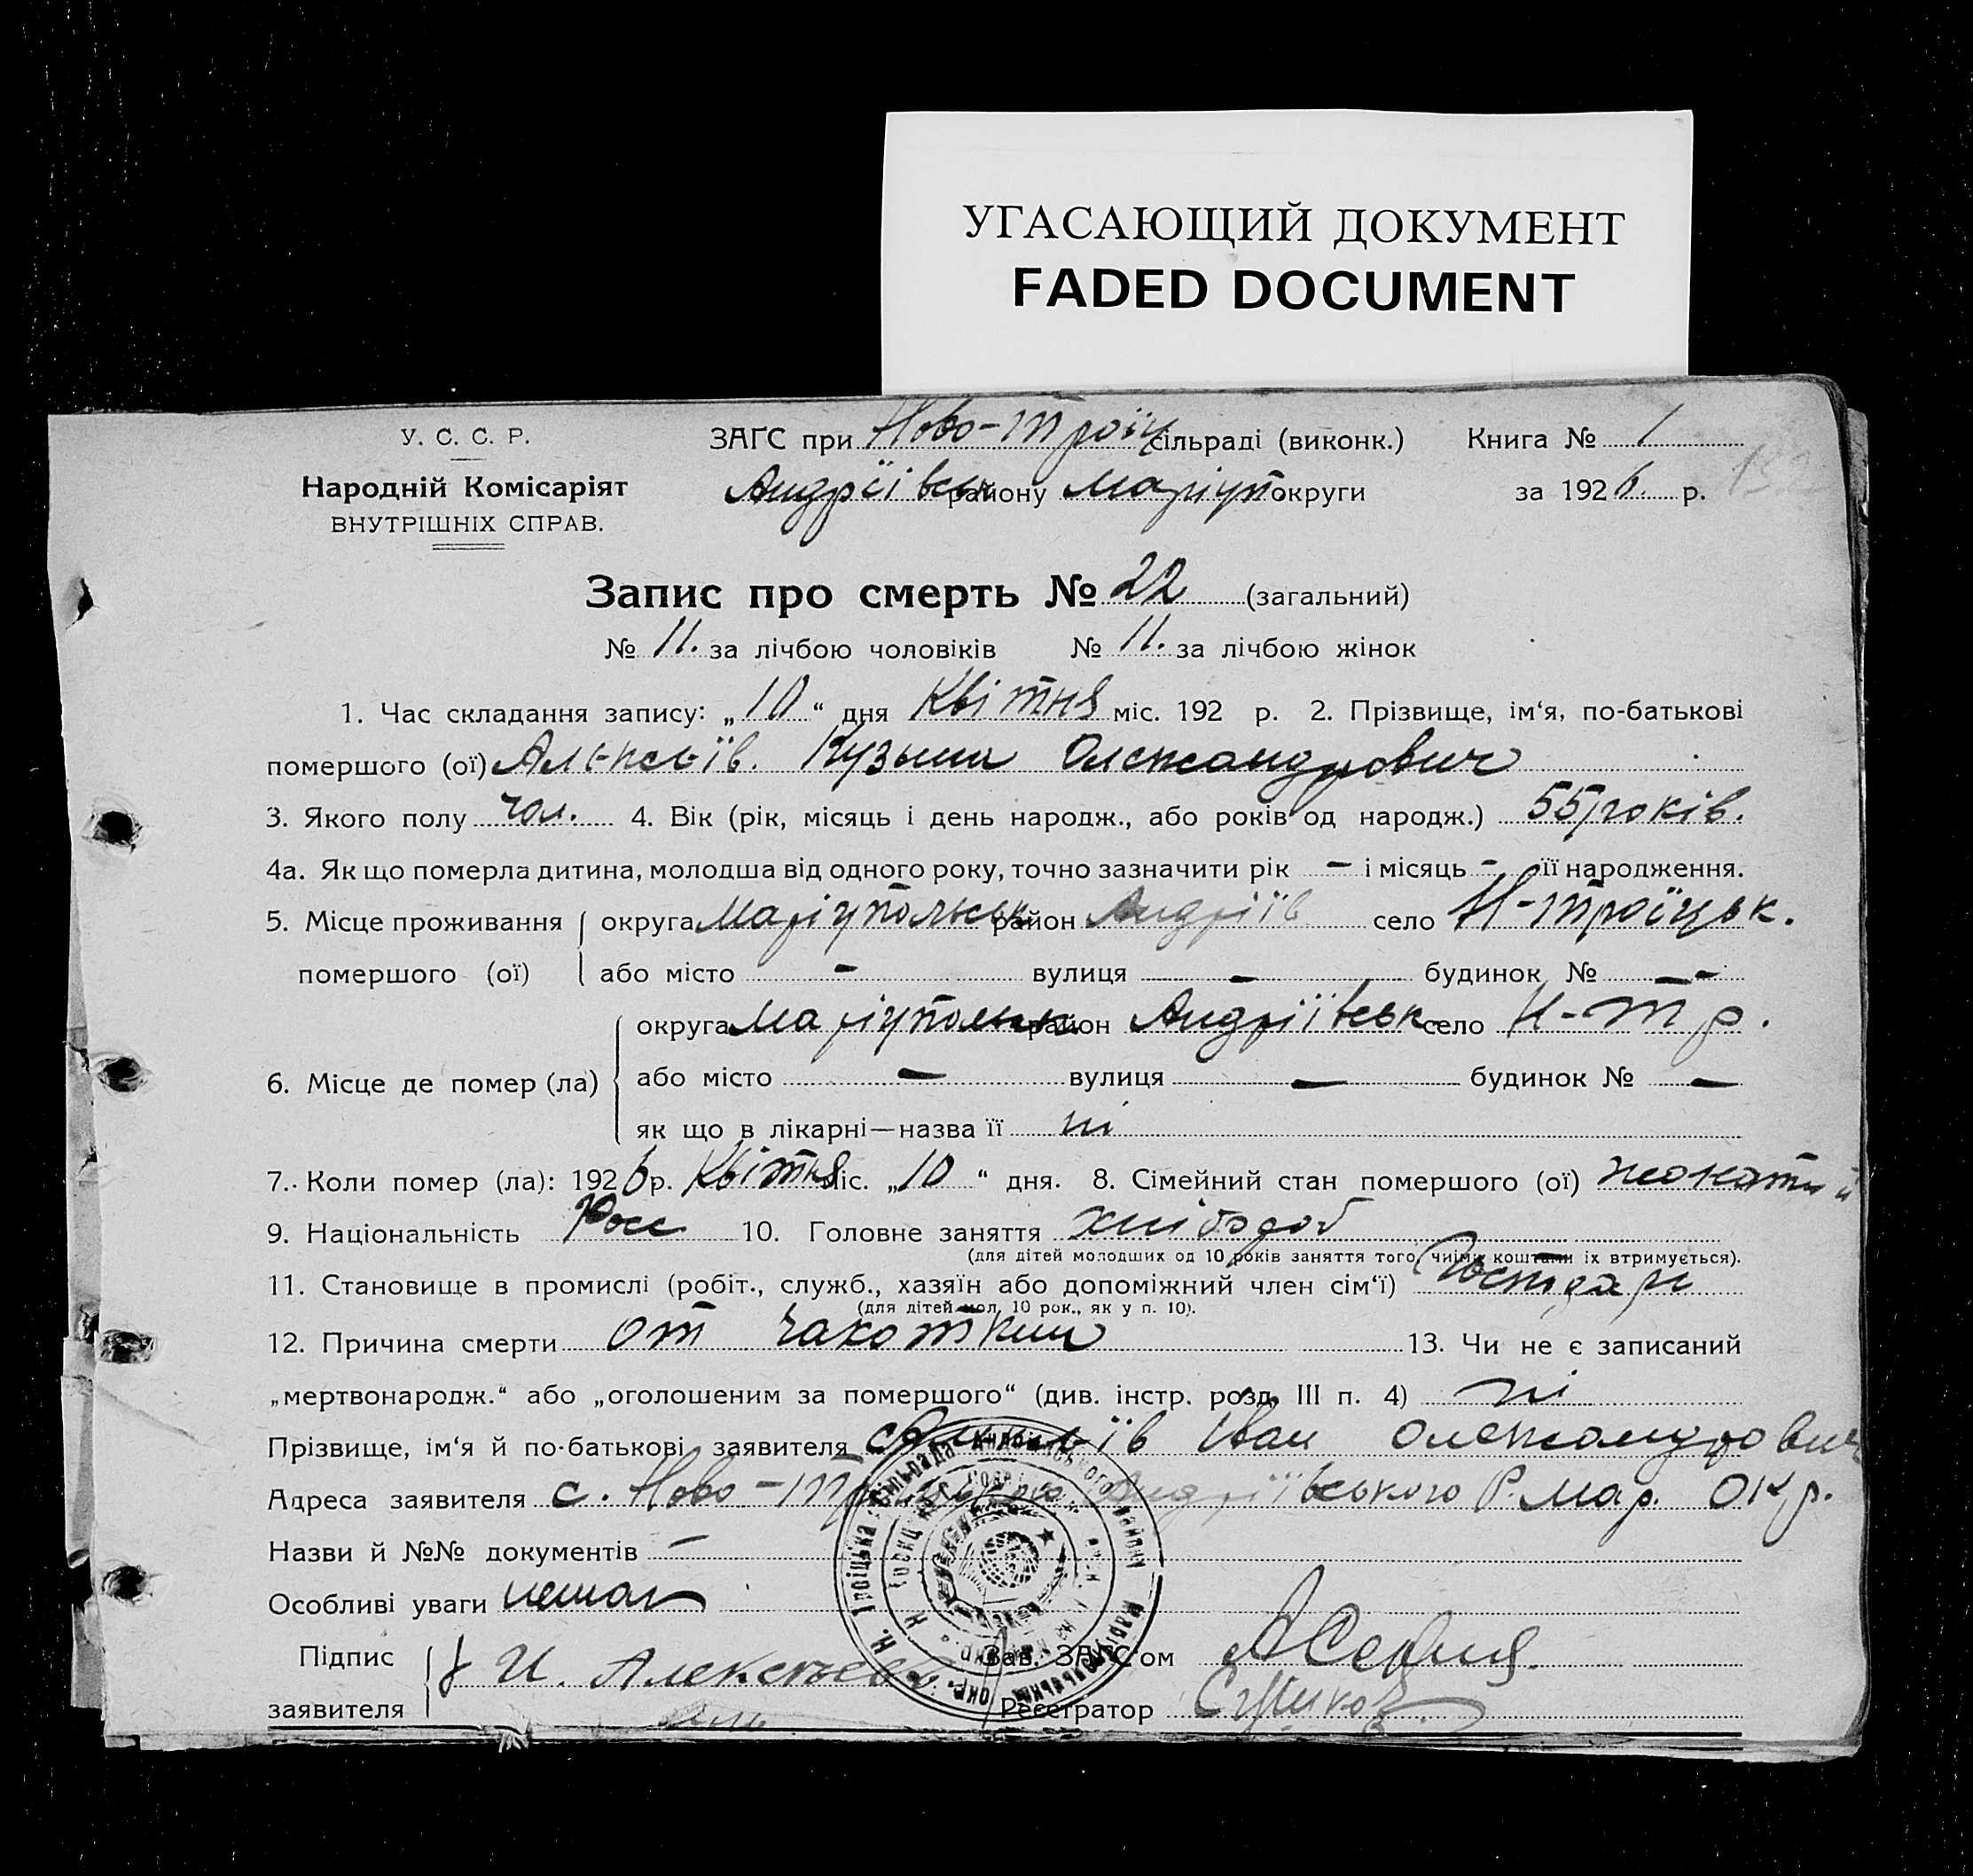 УГАСАЮЩИЙ ДОКУМЕНТ
FADED DOCUMENT
У. С. С. Р.
Народній Комісаріят
ВНУТРІШНІХ СПРАВ.
ЗАГС при Ново-Троїц сільраді (виконк.) Книга № 1
Андріївськ району Маріуп. округи за 1926. р.
Запис про смерть № 22 (загальний)
№ 11. за лічбою чоловіків № 11. за лічбою жінок
1. Час складання запису: „10“ дня Квітня міс. 192 р. 2. Прізвище, ім‘я, по-батькові
померш­ого (ої) Алексеїв. Кузьма Олександрович
3. Якого полу чол. 4. Вік (рік, місяць і день народж., або років од народж.) 55 років.
4а. Як що померла дитина, молодша від одного року, точно зазначити рік – і місяць – її народження.
5. Місце проживання округа Маріупольськ район Андріїв село Н-Троїцьк.
померш­ого (ої) або місто – вулиця – будинок № –
округа Маріупольськ район Андріївськ село Н-Тр.
6. Місце де помер (ла) або місто – вулиця – будинок № –
як що в лікарні—назва її ні
7. Коли помер (ла): 1926 р. Квітня міс. „10“ дня. 8. Сімейний стан померш­ого (ої) жонатий
9. Національність Росс 10. Головне заняття хлібороб
(для дітей молодших од 10 років заняття того, чиїми коштами їх втримується).
11. Становище в промислі (робіт., служб., хазяїн або допоміжний член сім‘ї) Господарь
(для дітей мол. 10 рок., як у п. 10).
12. Причина смерти от чахотким 13. Чи не є записаний
„мертвонародж.“ або „оголошеним за померш­ого“ (див. інстр. розд. III п. 4) ні
Прізвище, ім‘я й по-батькові заявителя Іван Олександрович
Адреса заявителя с. Ново-Тр Андріївського Р. Мар. Окр.
Назви й №№ документів –
Особливі уваги немає
Підпис И. Алексеев Зав. ЗАГС‘ом
заявителя Реєстратор
Н. Троїцька сільрада Андріївського району Маріупольськ. окр.